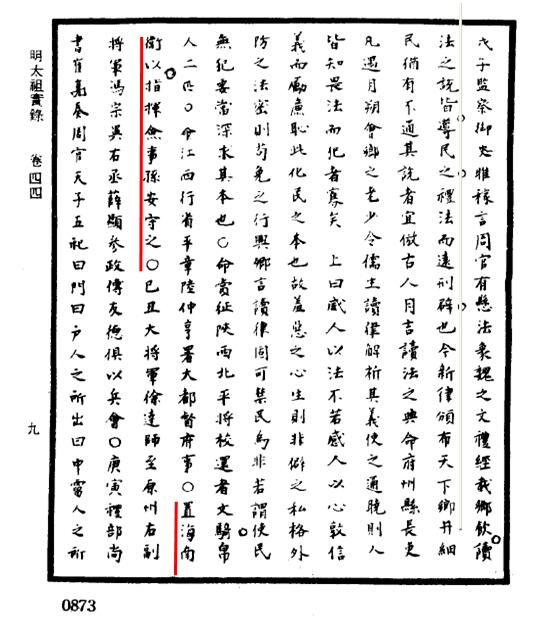 戊子監察御史睢稼言周官有懸法象魏之文禮經載鄉飲讀
法之說皆導民之禮法而遠刑辟也今新律頒布天下鄉井細
民猶有不通其說者宜倣古人月吉讀法之典命府州縣長吏
凡遇月朔會鄉之老少令儒生讀律解析其義使之通曉則人
皆知畏法而犯者寡矣　上曰威人以法不若感人以心敦信
義而勵廉恥此化民之本也故羞惡之心生則非僻之私格外
防之法密則苟免之行興卿言讀律固可禁民為非若謂使民
無犯要當深求其本也○命賞征陝西北平將校還者文騎帛
人二匹○命江西行省平章陸仲亨署大都督府事○置海南
衛以指揮僉事孫安守之○己丑大將軍徐達師至原州右副
將軍馮宗異右丞薛顯參政傅友德俱以兵會○庚寅禮部尚
書崔亮奏周官天子五祀曰門曰戶人之所出曰中霤人之所
明太祖實錄　卷四四　九
0873